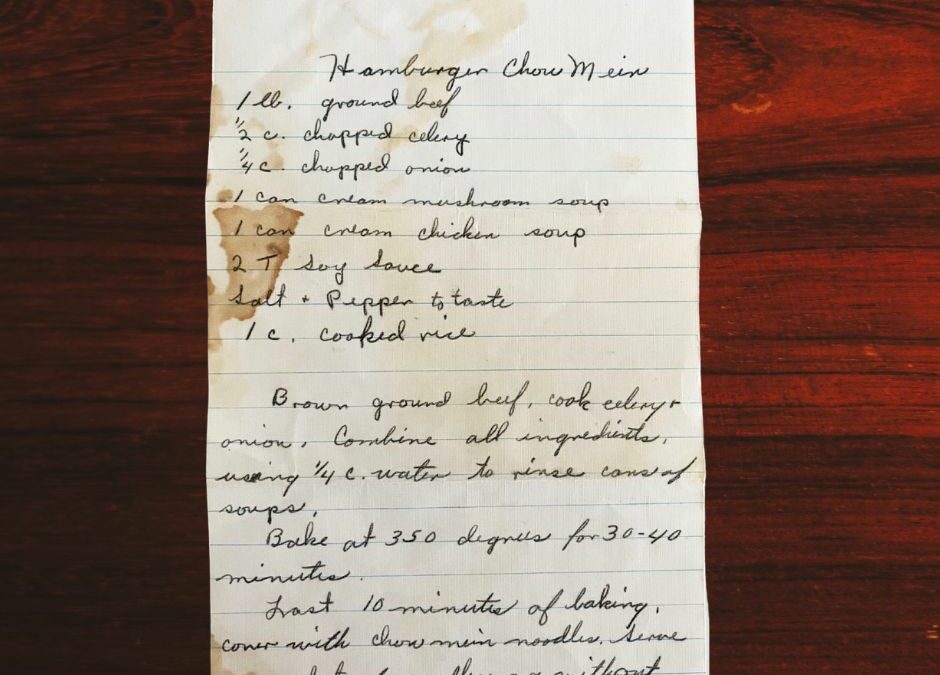 Hamburger Chow Mein
1 lb. ground beef
1/2 c. chopped celery
1/4 c. chopped onion
1 can cream mushroom soup
1 can cream chicken soup
2 T soy sauce
Salt + Pepper to taste
1 c. cooked rice
Brown ground beef, cook celery +
onion. Combine all ingredients,
using 1/4 c. water to rinse cans of
soups.
Bake at 350 degrees for 30-40
minutes.
Last 10 minutes of baking,
cover with chow mein noodles. Serve
without